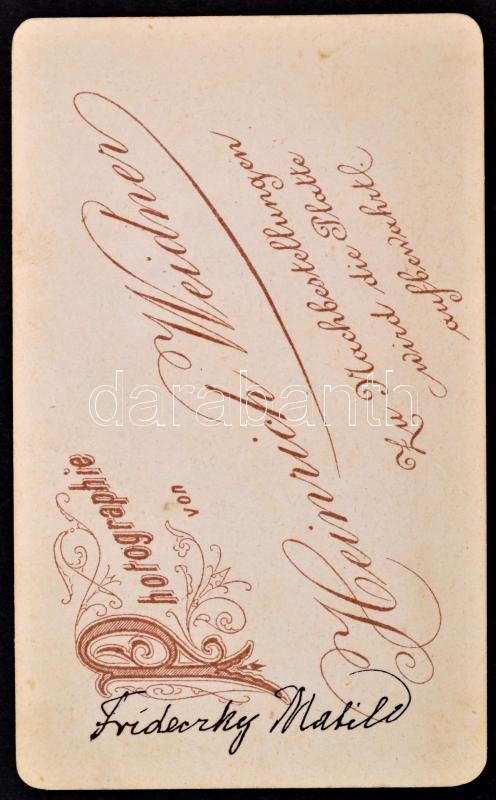 Photographie
von
Heinrich Weidner
Zu Nachbestellungen
wird die Platte
aufbewahrt.
Frideczky Matild
darabanth